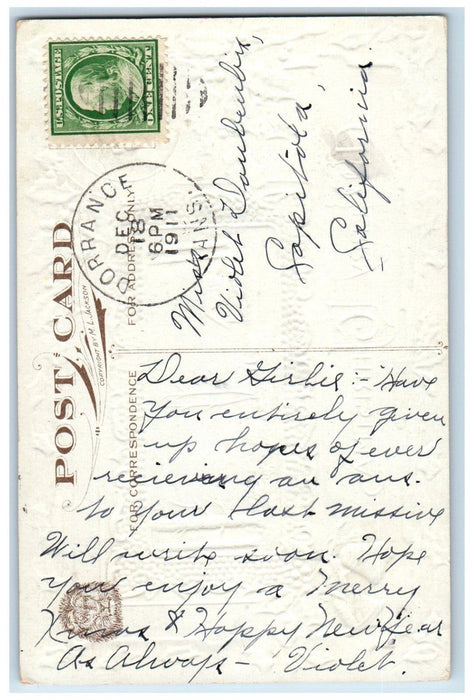 U.S. POSTAGE
ONE CENT
DORRANCE
DEC
18
6 PM
1911
KANS.
POST CARD
COPYRIGHT BY M.L. JACKSON
FOR ADDRESS ONLY
Miss
Violet
Capitola,
California
FOR CORRESPONDENCE
Dear Girlie:- Have
you entirely given
up hopes of ever
recieving an ans.
to your last missive
Will write soon. Hope
you enjoy a Merry
Xmas & Happy New Year
As Always - Violet.